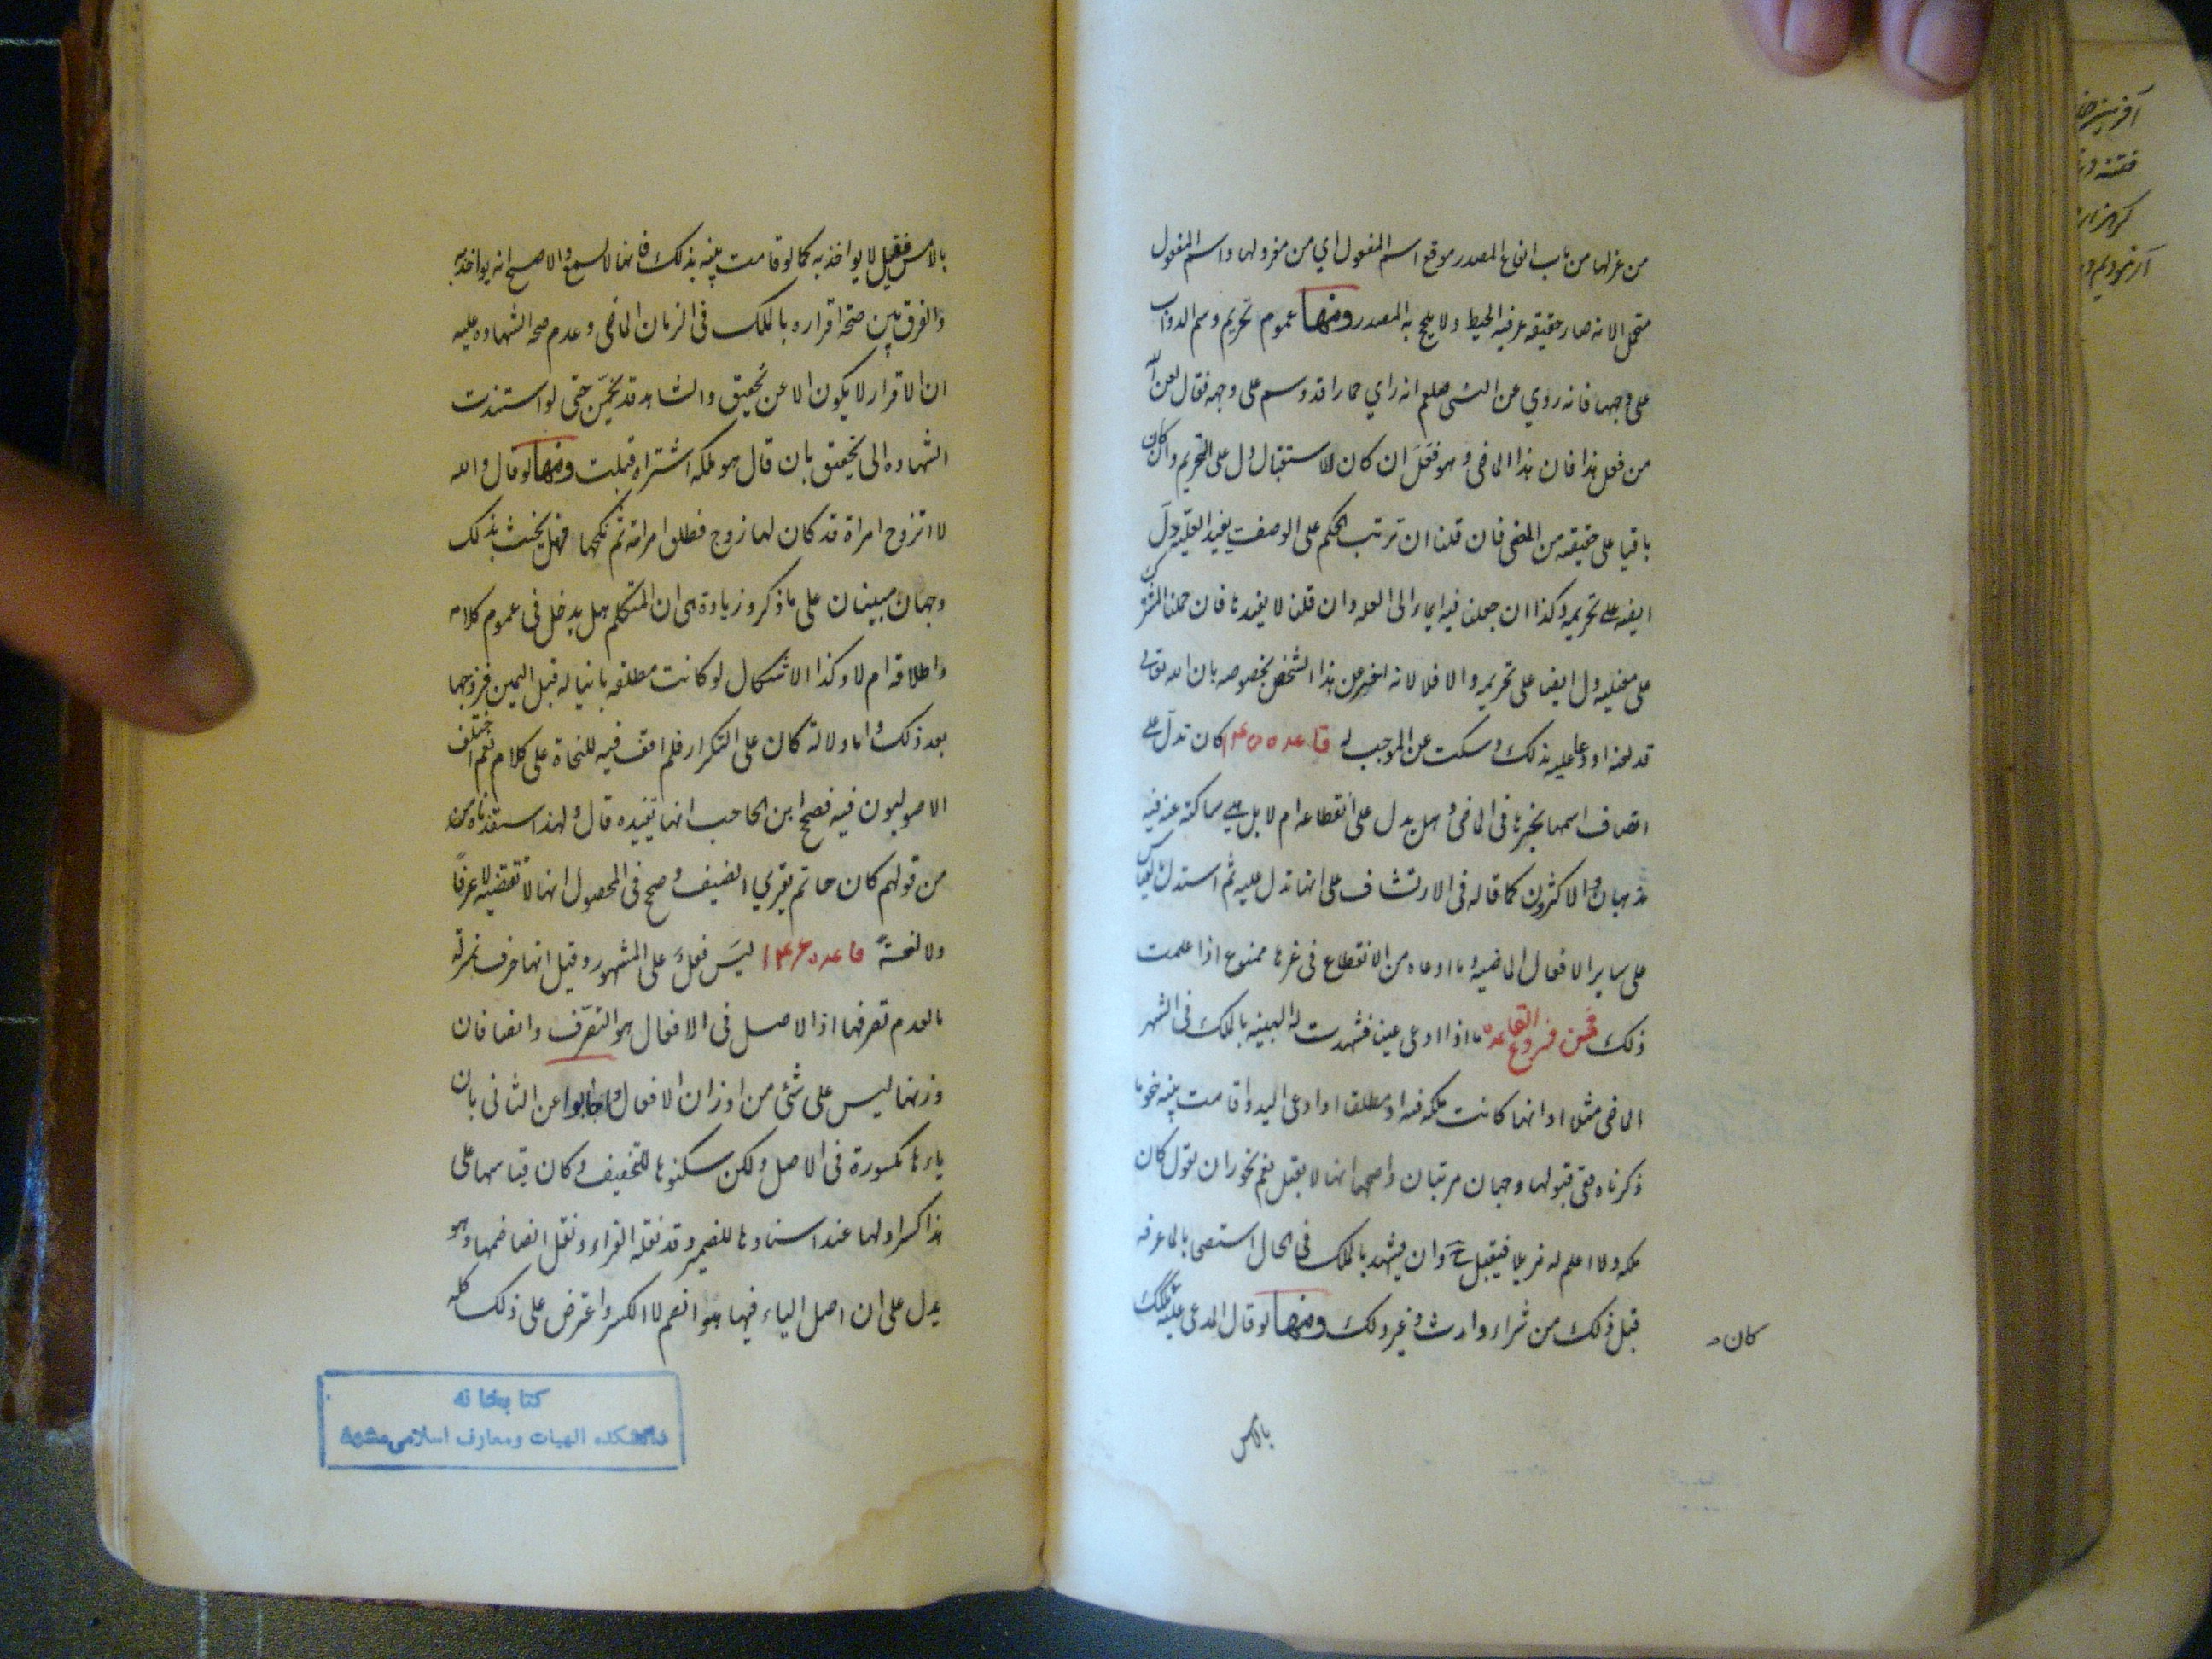 من غزلها من باب ايقاع المصدر موقع اسم المفعول اي من مغزولها واسم المفعول
متحمل الا انه صار حقيقه عرفيه الخيط ولا يلمح به المصدر ومنها عموم تحريم وسم الدواب
على وجهها فانه روي عن النبي صلعم انه راي حمارا قد وسم على وجهه فقال لعن الله
من فعل هذا فان هذا الماضى وهو فعَل ان كان للاستقبال دل على التحريم وان كان
باقيا على حقيقته من المضى فان قلنا ان ترتب الحكم على الوصف يفيد العليّه دلّ
ايضه على تحريمه وكذا ان جعلنا فيه ايماء الى العله وان قلنا لا يفيدها فان حملنا المشترك
على معنييه دل ايضا على تحريمه والا فلا لانه اخبر عن هذا الشخص بخصوصه بان الله تعالى
قد لعنه او دعا عليه بذلك وسكت عن الموجب له قاعده ١٤٥ كان تدلّ على
اتصاف اسمها بخبرها فى الماضى وهل يدل على انقطاعه ام لا بل هي ساكته عنه فيه
مذهبان والاكثرون كما قاله فى الارتشاف على انها تدل عليه ثم استدل بالقياس
على ساير الافعال الماضيه وما ادعاه من الانقطاع فى غيرها ممنوع اذا علمت
ذلك فمن فروع القاعدة ما اذا ادعى عينا فشهدت له البينه بالملك فى الشهر
الماضى مثلا او انها كانت ملكه فيه او مطلقا او ادعى اليد واقامت بينه نحو ما
ذكرناه ففى قبولها وجهان مرتبان واصحهما انها لا يقبل نعم يجوز ان يقول كان
ملكه ولا اعلم له مزيلا فيقبل ح وان يشهد بالملك فى الحال استصحابا لما عرفه
قبل ذلك من شراء وارث وغير ذلك ومنها لو قال المدعى عليه ملكك
كان
بالامس
بالامس فقيل لا يواخذ به كما لو قامت بينه بذلك فانها لا تسمع والاصح انه يواخذ به
والفرق بين صحّة اقراره بالملك فى الزمان الماضى وعدم صحه الشهاده عليه
ان الاقرار لا يكون الا عن تحقيق والشاهد قد يخمّن حتى لو استندت
الشهاده الى تحقيق بان قال هو ملكه اشتراه قبلت ومنها لو قال والله
لا اتزوج امراة قد كان لها زوج فطلق امراته ثم نكحها فهل يحنث بذلك
وجهان مبينان على ما ذكر وزيادة هى ان المتكلم هل يدخل فى عموم كلامه
واطلاقه ام لا وكذا الاشكال لو كانت مطلقه بائنا له قبل اليمين فزوجها
بعد ذلك واما دلالة كان على التكرار فلم اقف فيه للنحاة على كلام نعم اختلف
الاصوليون فيه فصحح ابن الحاجب انها تفيده قال ولهذا استفدناه من
من قولهم كان حاتم يقري الضيف وصحح فى المحصول انها لا تقتضيه لا عرفًا
ولا لغةً قاعده ١٤٦ ليسَ فعلٌ على المشهور وقيل انها حرف نمرته
بالعدم تصرفها اذ الاصل فى الافعال هو التصرّف وايضا فان
وزنها ليس على شئ من اوزان الافعال واجابوا عن الثانى بان
ياءها مكسورة فى الاصل ولكن سكنوها للتخفيف وكان قياسها على
هذا كسر اولها عند اسنادها للضمير وقد نقله الفراء ونقل ايضا ضمها وهو
يدل على ان اصل الياء فيها هو الضم لا الكسر واعترض على ذلك كله
كتابخانه
دانشكده الهيات ومعارف اسلامى مشهد